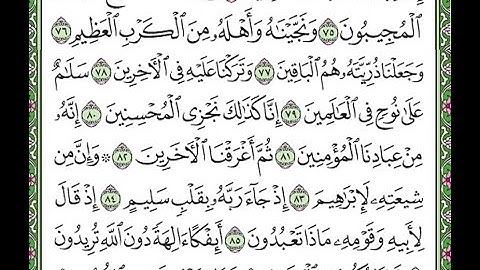 ٱلْمُجِيبُونَ ٧٥ وَنَجَّيْنَٰهُ وَأَهْلَهُۥ مِنَ ٱلْكَرْبِ ٱلْعَظِيمِ ٧٦
وَجَعَلْنَا ذُرِّيَّتَهُۥ هُمُ ٱلْبَاقِينَ ٧٧ وَتَرَكْنَا عَلَيْهِ فِى ٱلْءَاخِرِينَ ٧٨ سَلَٰمٌ
عَلَىٰ نُوحٍ فِى ٱلْعَٰلَمِينَ ٧٩ إِنَّا كَذَٰلِكَ نَجْزِى ٱلْمُحْسِنِينَ ٨٠ إِنَّهُۥ
مِنْ عِبَادِنَا ٱلْمُؤْمِنِينَ ٨١ ثُمَّ أَغْرَقْنَا ٱلْءَاخَرِينَ ٨٢ ۞ وَإِنَّ مِن
شِيعَتِهِۦ لَإِبْرَٰهِيمَ ٨٣ إِذْ جَآءَ رَبَّهُۥ بِقَلْبٍ سَلِيمٍ ٨٤ إِذْ قَالَ
لِأَبِيهِ وَقَوْمِهِۦ مَاذَا تَعْبُدُونَ ٨٥ أَئِفْكًا ءَالِهَةً دُونَ ٱللَّهِ تُرِيدُونَ